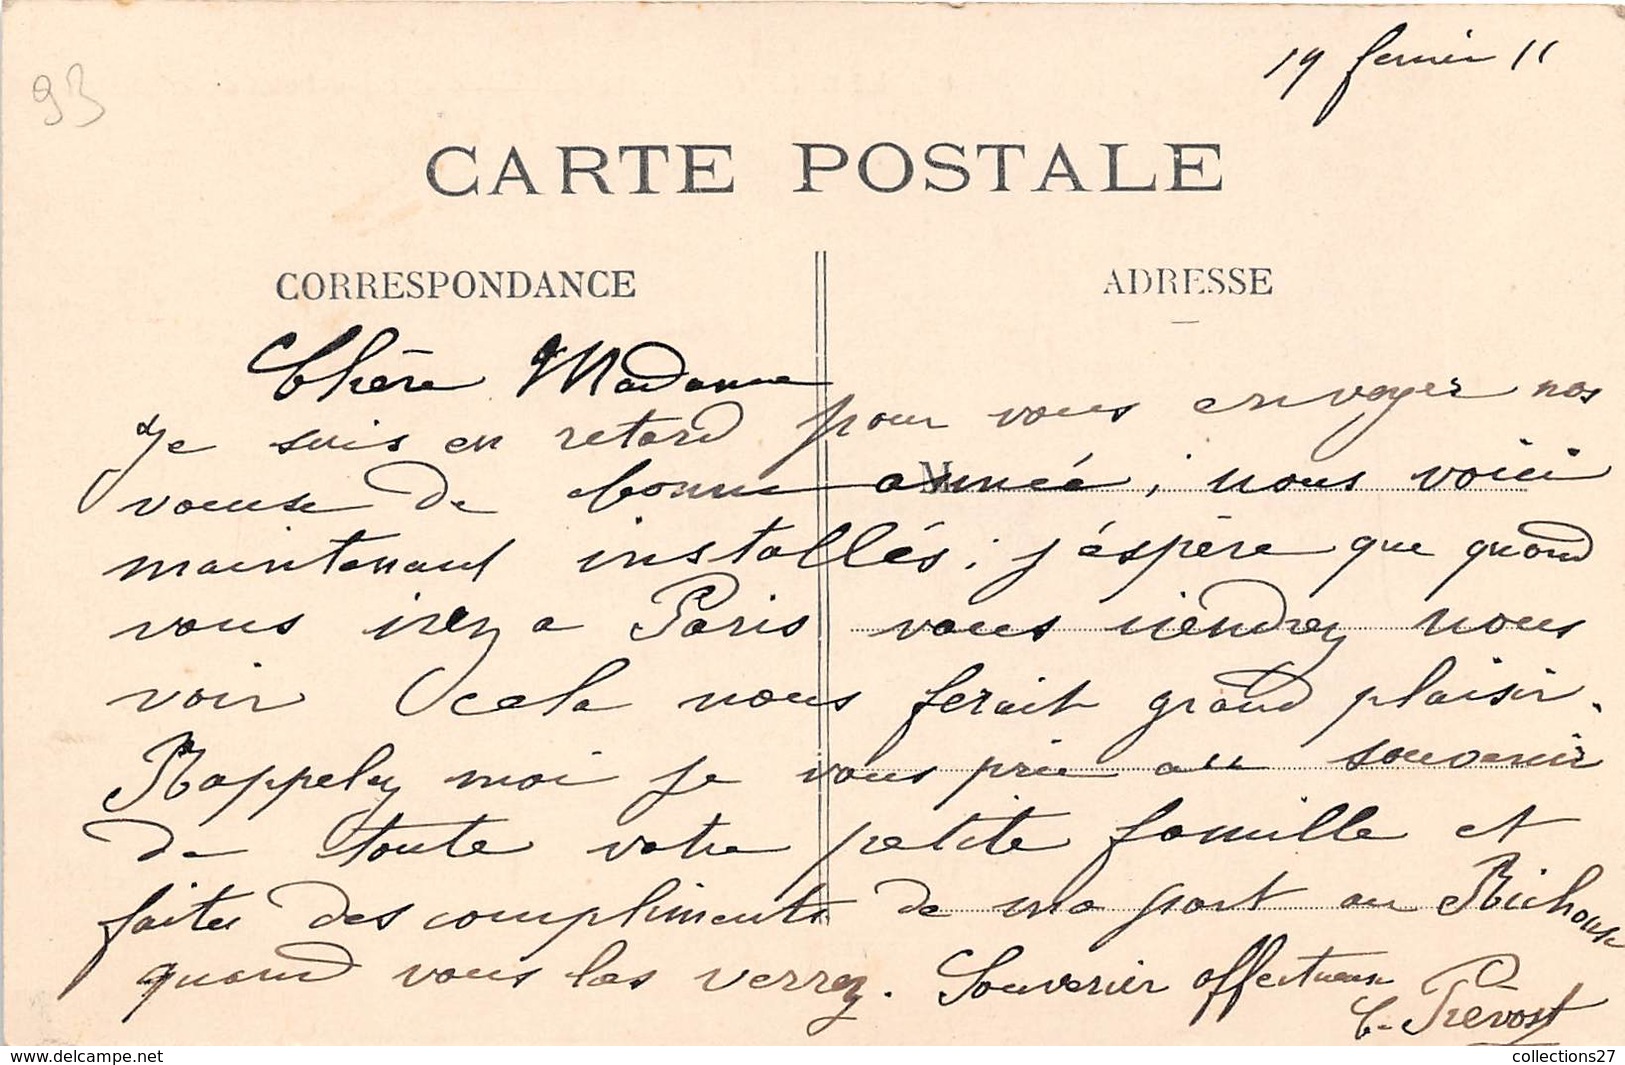 19 fevrier 11
93
CARTE POSTALE
CORRESPONDANCE
ADRESSE
Chère Madame
Je suis en retard pour vous envoyer nos
voeux de bonne année ; nous voici
M
maintenant installés ; j'éspère que quand
vous irez a Paris vous viendrez nous
voir cela nous ferait grand plaisir.
Rappelez moi je vous prie au souvenir
de toute votre petite famille et
faites des compliments de ma part au
quand vous les verrez. Souvenir affectueux
C. Prévost
www.delcampe.net
collections27